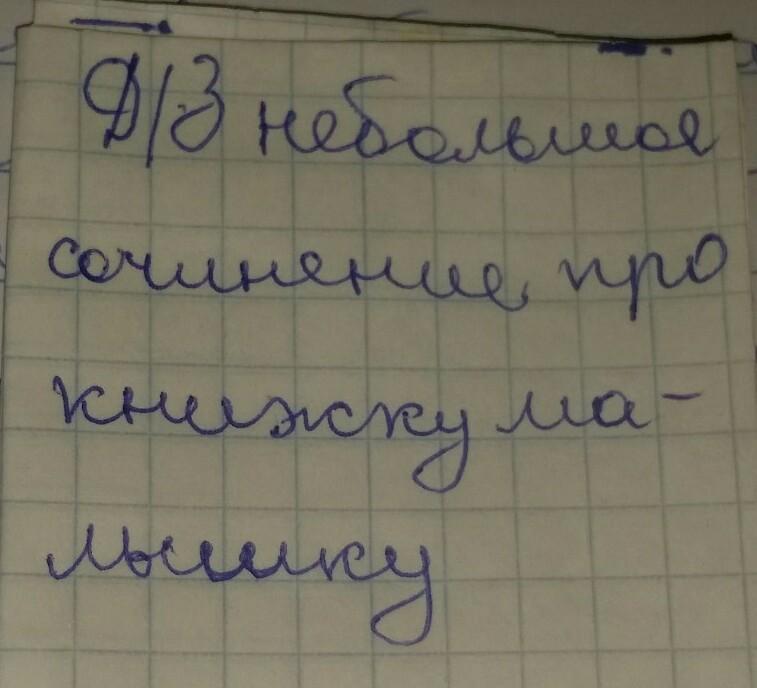 Д/З небольшое
сочинение про
книжку ма-
лышку